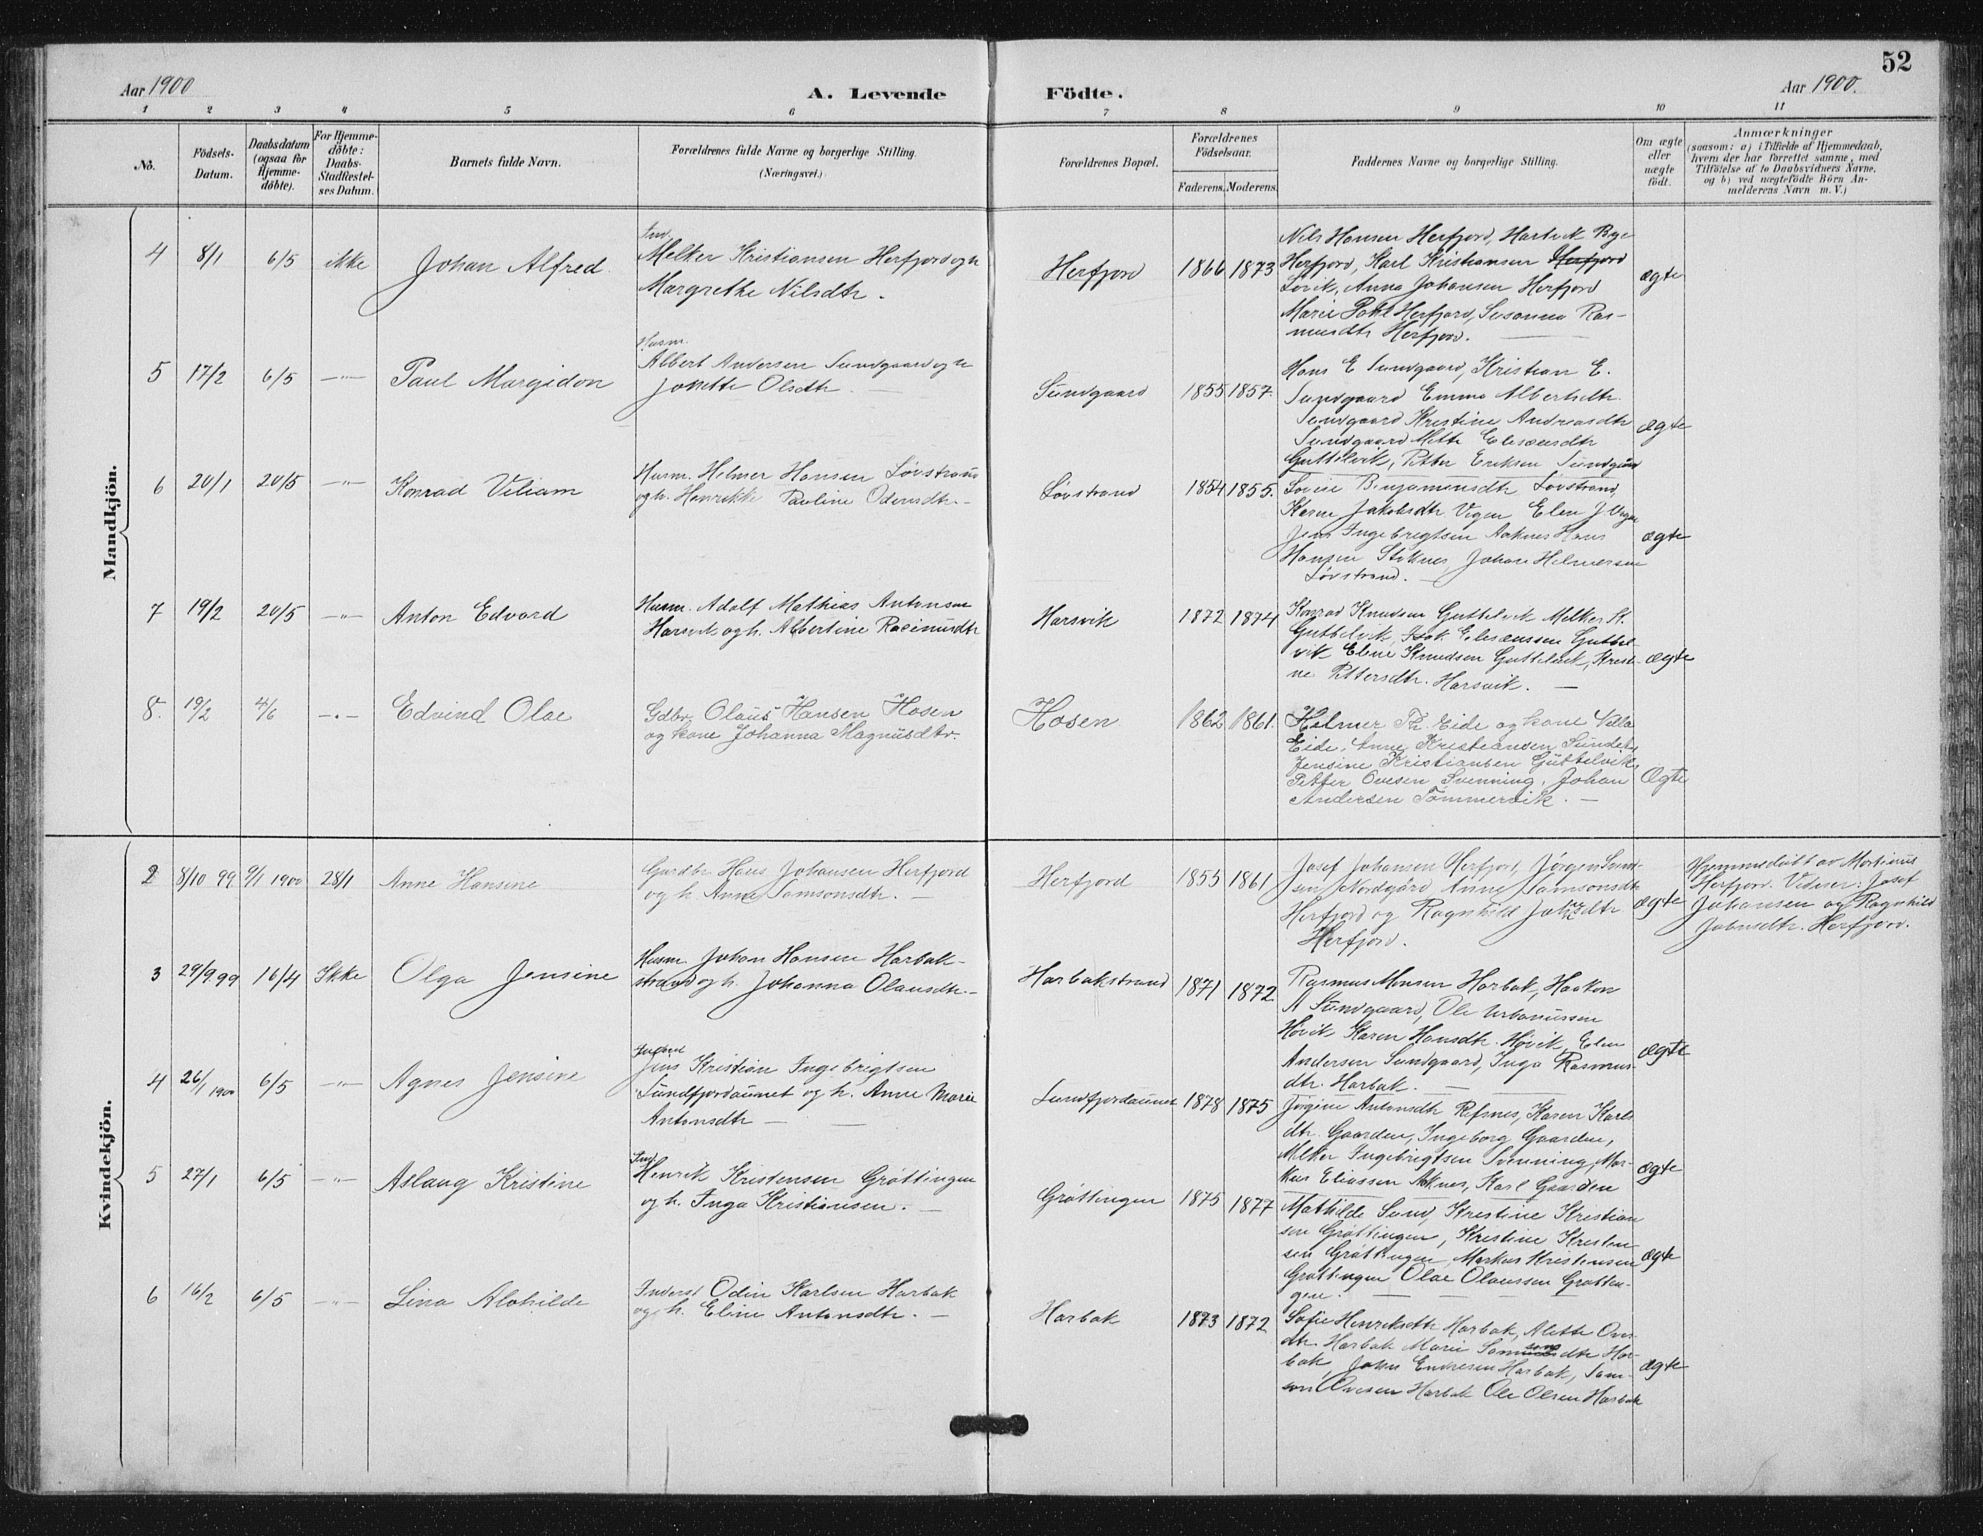 52
Aar 1900
A. Levende Födte.
Aar 1900.
1 2 3 4 5 6 7 8 9 10 11
No.
Födsels-
Datum.
Daabsdatum
(ogsaa for
Hjemme-
döbte).
For Hjemme-
döbte:
Daabs-
Stadfæstel-
ses Datum.
Barnets fulde Navn.
Forældrenes fulde Navne og borgerlige Stilling.
(Næringsvei.)
Forældrenes Bopæl.
Forældrenes
Födselsaar.
Faderens. Moderens.
Faddernes Navne og borgerlige Stilling.
Om ægte
eller
uægte
födt.
Anmærkninger
(saasom: a) i Tilfælde af Hjemmedaab,
hvem der har forrettet samme, med
Tilföielse af to Daabsvidners Navne,
og b) ved uægtefödte Börn An-
melderens Navn m. V.)
Mandkjön.
4 8/1 6/5 ikke Johan Alfred.
Ind.
Melker Kristiansen Herfjord og h
Margrethe Nilsdtr.
Herfjord 1866 1873
Nils Hansen Herfjord, Hartvik
Herfjord, Karl Kristiansen Herfjord
Løvik, Anna Johansen Herfjord
Marie Herfjord, Susanna Ras-
musdtr Herfjord.
ægte
5 17/2 6/5 —"— Paul Margidon
Husm.
Albert Andersen Sundgaard og h
Jonette Olsdtr.
Sundgaard 1855 1857.
Hans E Sundgaard, Kristian E.
Sundgaard Emma Albertsdtr.
Sundgaard Kristine Andreasdtr
Sundgaard Mette Eleseusdtr
Guttelvik, Petter Eriksen Sundgaard
ægte
6 20/1 20/5 —"— Konrad Viliam
Husm. Helmer Hansen Løvstrand
og h. Henrikke Pauline Odinsdtr.
Løvstrand 1854 1855.
Benjaminsdtr Løvstrand,
Karen Jakobsdtr Vigen Elen J Vigen
Jens Ingebrigtsen Aaknes Hans
Hansen Stoknes, Johan Helmersen
Løvstrand.
ægte
7 19/2 20/5 —"— Anton Edvard
Husm. Adolf Mathias Antonsen
Harsvik og h. Albertine Rasmusdtr
Harsvik 1872 1874
Konrad Knudsen Guttelvik Melker K.
Guttelvik, Isak Eleseussen Guttel-
vik Eline Knudsen Guttelvik, Kristi-
ne Pettersdtr. Harsvik.
ægte
8. 19/2 4/6 —"— Edvind Olae
Gdbr. Olaus Hansen Hosen
og kone Johanna Magnusdtr.
Hosen 1862 1861.
Helmer Th. Eide og kone Villa
Eide, Anne Kristiansen Sundet,
Jensine Kristiansen Guttelvik,
Petter Ovesen Svenning, Johan
Andersen Tömmervik.
Ægte
Kvindekjön.
2 8/10 99 9/1 1900 28/1 Anne Hansine
Gardbr Hans Johansen Herfjord
og h. Anne Samsonsdtr.
Herfjord 1855 1861
Josef Johansen Herfjord, Jørgen
sen Nordgård Anne Samsonsdtr
Herfjord og Ragnhild Johnsdtr
Herfjord.
ægte
Hjemmedøbt av Martinus
Herfjord. Vidner: Josef
Johansen og Ragnhild
Johnsdtr. Herfjord.
3 29/9 99 16/4 Ikke Olga Jensine
Husm. Johan Hansen Harbak-
strand og h. Johanna Olausdtr.
Harbakstrand 1871 1872
Rasmus Monsen Harbak, Haakon
A Sundgaard, Ole Urbanussen
Høvik Karen Hansdtr. Høvik, Elen
Andersen Sundgaard, Inga Rasmus-
dtr. Harbak.
ægte
4 26/1 1900 6/5 —"— Agnes Jensine
Inderst
Jens Kristian Ingebrigtsen
Sundfjordaunet og h. Anne Marie
Antonsdtr
Sundfjordaunet 1878 1875
Jørgine Antonsdtr Refsnes, Karen Karls
dtr. Gaarden, Ingeborg Gaarden,
Melker Ingebrigtsen Svenning, Mar-
kus Eliassen Aknes, Karl Gaarden
ægte
5 27/1 6/5 —"— Aslaug Kristine
Ind.
Henrik Kristensen Grøttingen
og h. Inga Kristiansen.
Grøttingen 1875 1877
Mathilde Sund, Kristine Kristian
sen Grøttingen, Kristine Kristen-
sen Grøttingen, Markus Kristensen
Grøttingen Olae Olaussen Grøttin-
gen.
ægte
6 16/2 6/5 —"— Lina Alvhilde
Inderst Odin Karlsen Harbak
og h. Eline Antonsdtr.
Harbak 1873 1872
Sofie Henriksdtr Harbak, Alette Ove-
dtr. Harbak Marie dtr Har-
bak, Johan Harbak, Sam-
son Ovesen Harbak Ole Olsen Harbak
ægte